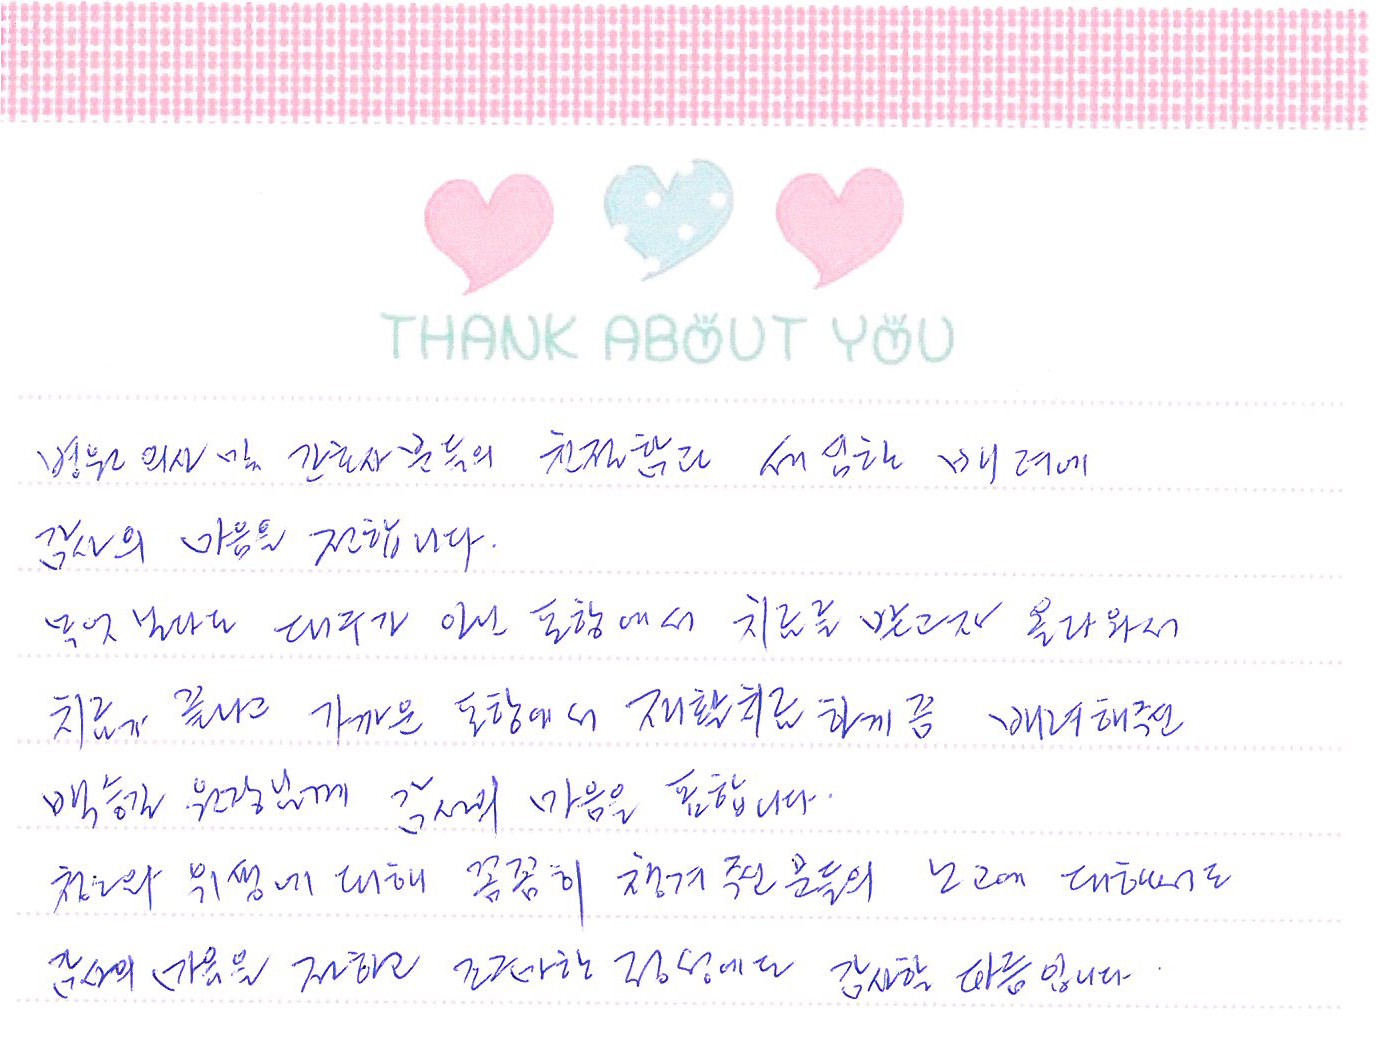 THANK ABOUT YOU
병원 의사 및 간호사분들의 친절함과 세심한 배려에
감사의 마음을 전합니다.
무엇보다도 대구가 아닌 포항에서 치료를 받고자 올라와서
치료가 끝나고 가까운 포항에서 재활치료 할게끔 배려해주신
백승길 원장님께 감사의 마음을 표합니다.
청소와 위생에 대해 꼼꼼히 챙겨주신 분들의 노고에 대해서도
감사의 마음을 전하고 조그마한 정성에도 감사할 따름입니다.